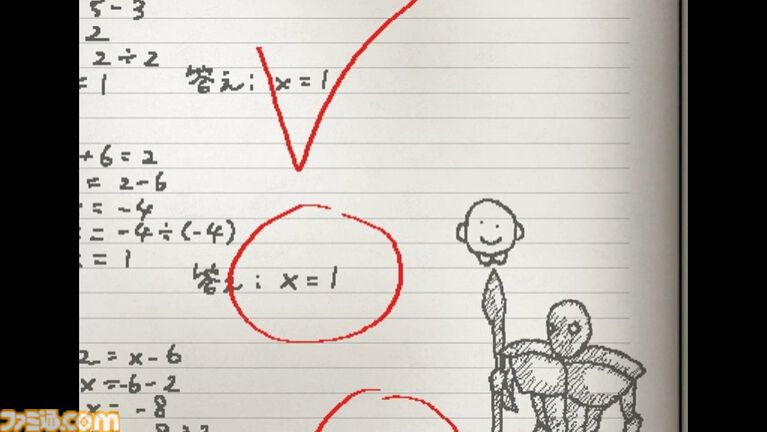 5-3
2
2÷2
= 1 答え: x = 1
+6 = 2
= 2-6
= -4
= -4÷(-4)
= 1
答え: x = 1
2 = x-6
x = -6-2
x = -8
ファミ通.com